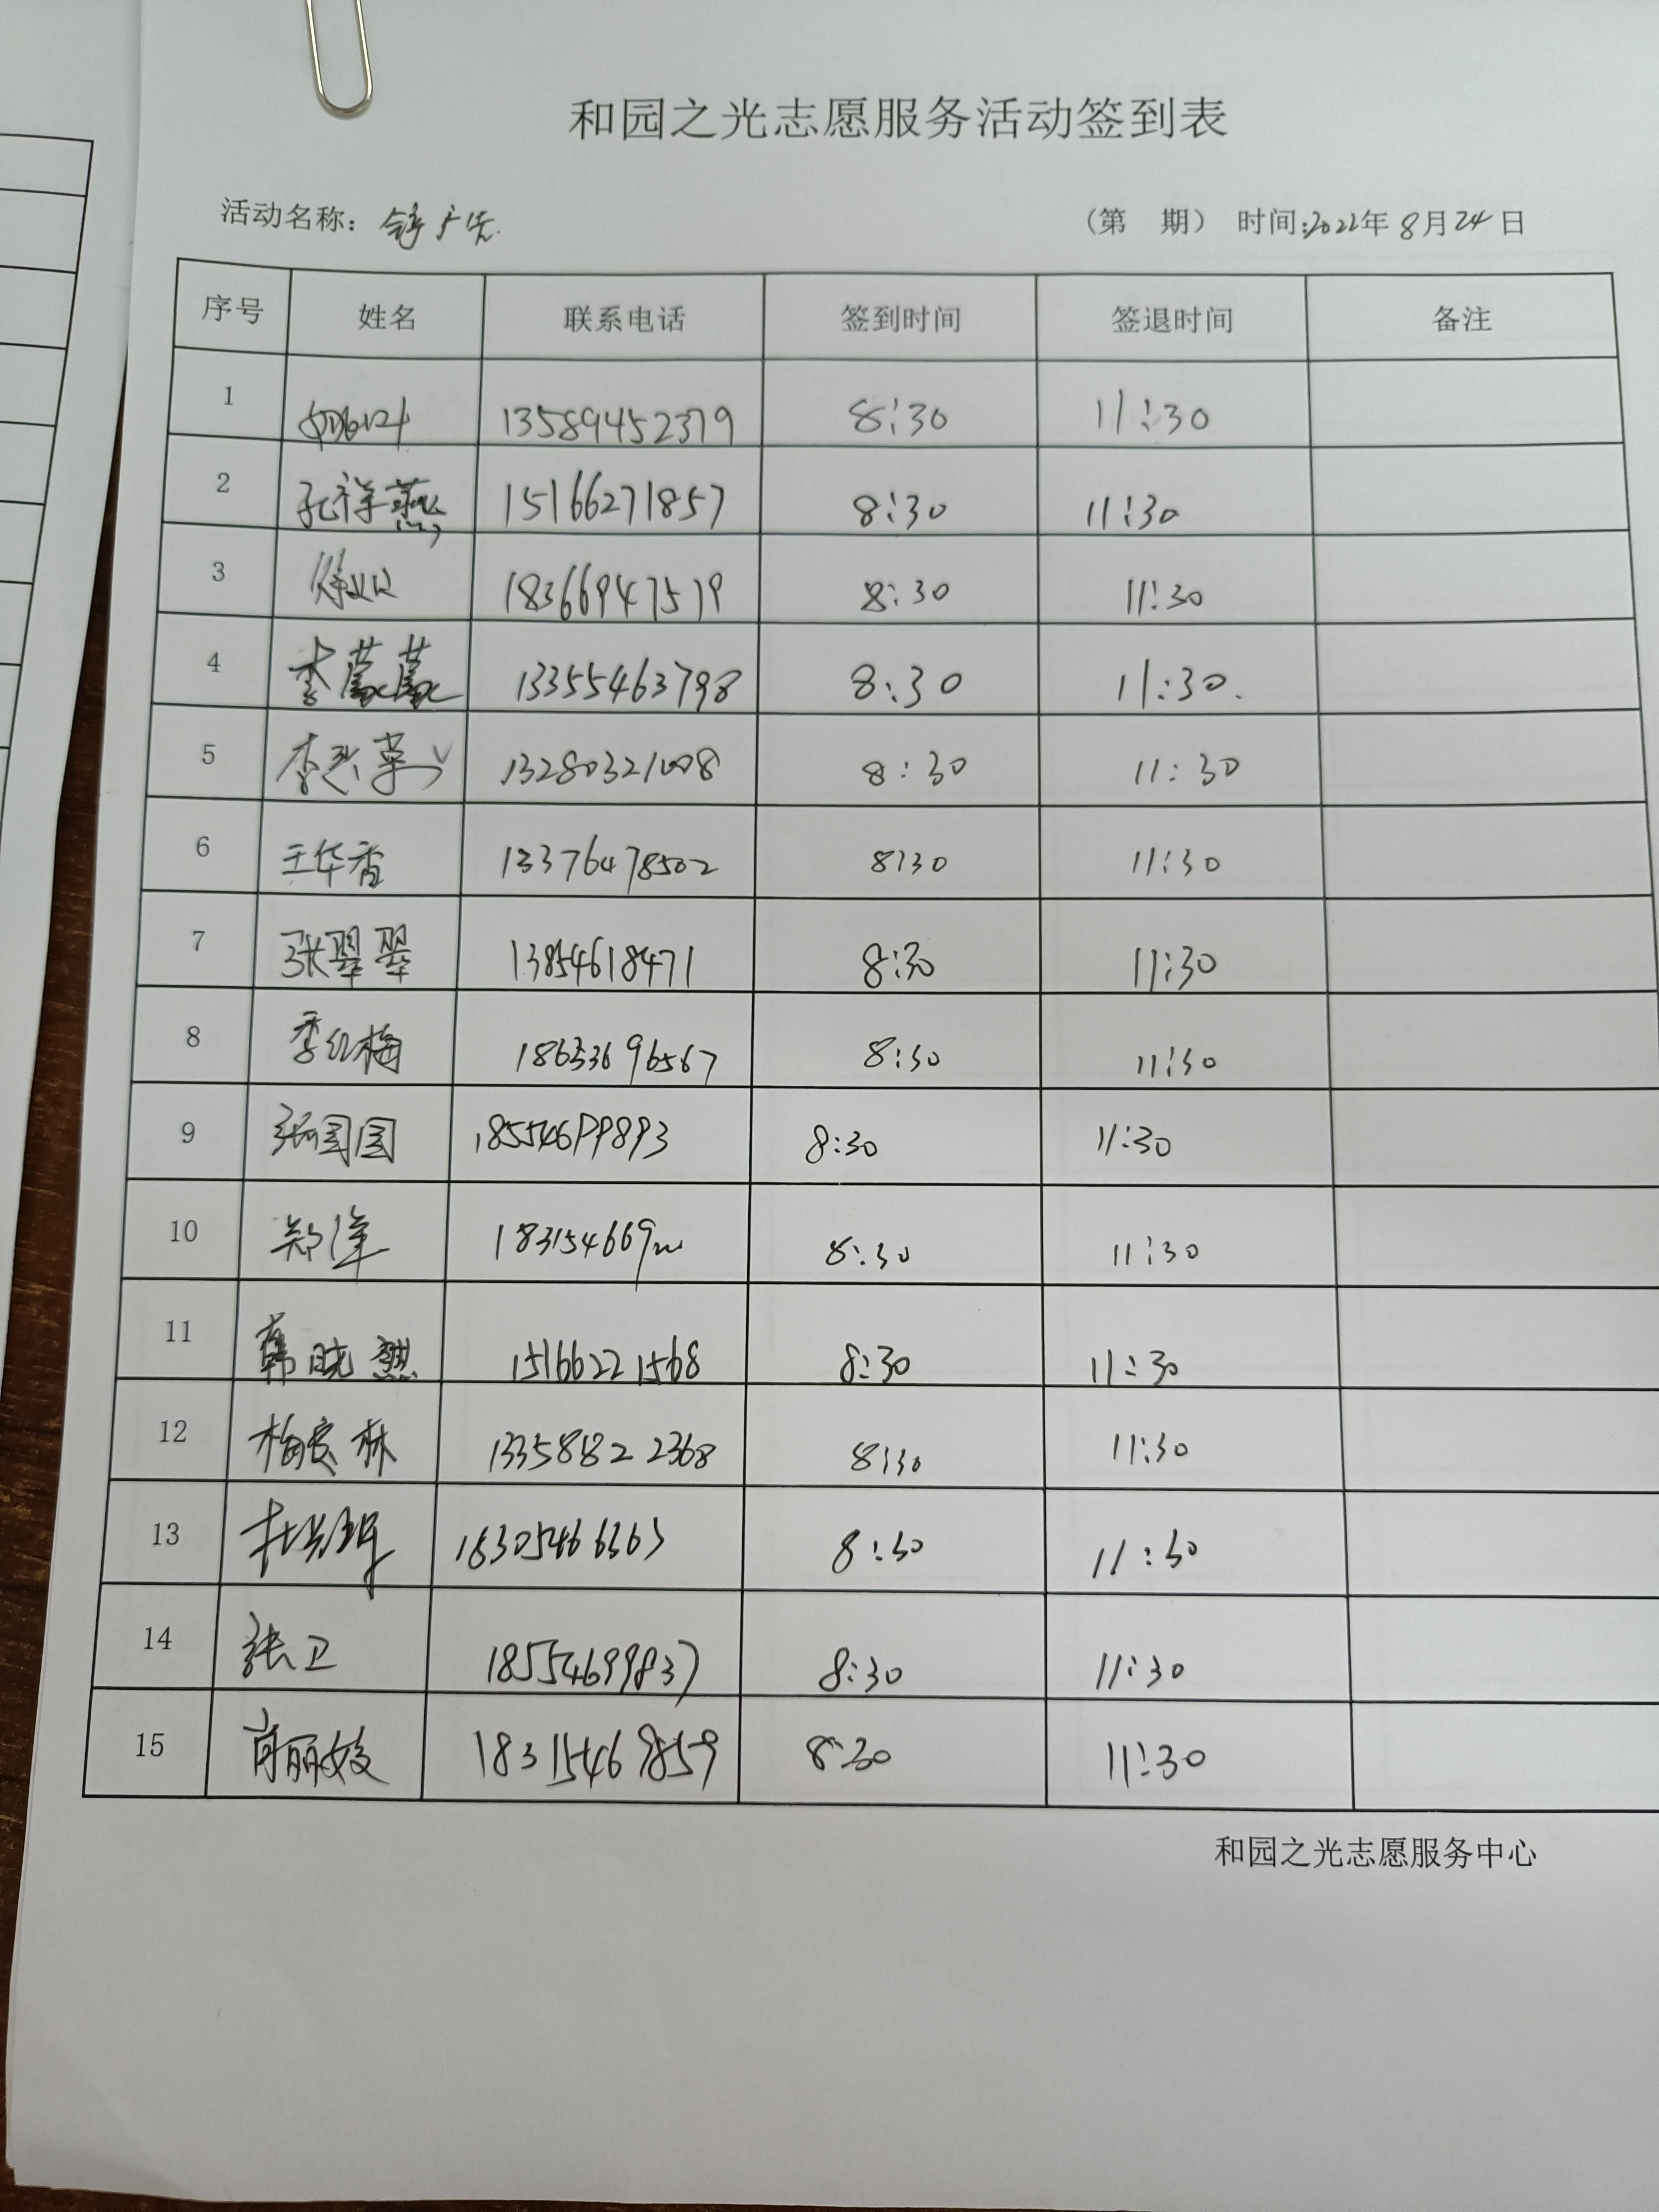 和园之光志愿服务活动签到表
活动名称: 铲广告 (第 期) 时间:2022年8月24日
序号 姓名 联系电话 签到时间 签退时间 备注
1 13589452379 8:30 11:30
2 孔祥燕 15166271857 8:30 11:30
3 18366947519 8:30 11:30
4 李蔓蔓 13355463798 8:30 11:30.
5 13280321008 8:30 11:30
6 王华香 13376478502 8:30 11:30
7 张翠翠 13854618471 8:30 11:30
8 季红梅 18653696567 8:30 11:30
9 张园园 18554699893 8:30 11:30
10 郑洋 8:30 11:30
11 韩晓燕 15166221568 8:30 11:30
12 133588822368 8:30 11:30
13 18305466363 8:30 11:30
14 张卫 18554699837 8:30 11:30
15 肖丽姣 18315469859 8:30 11:30
和园之光志愿服务中心